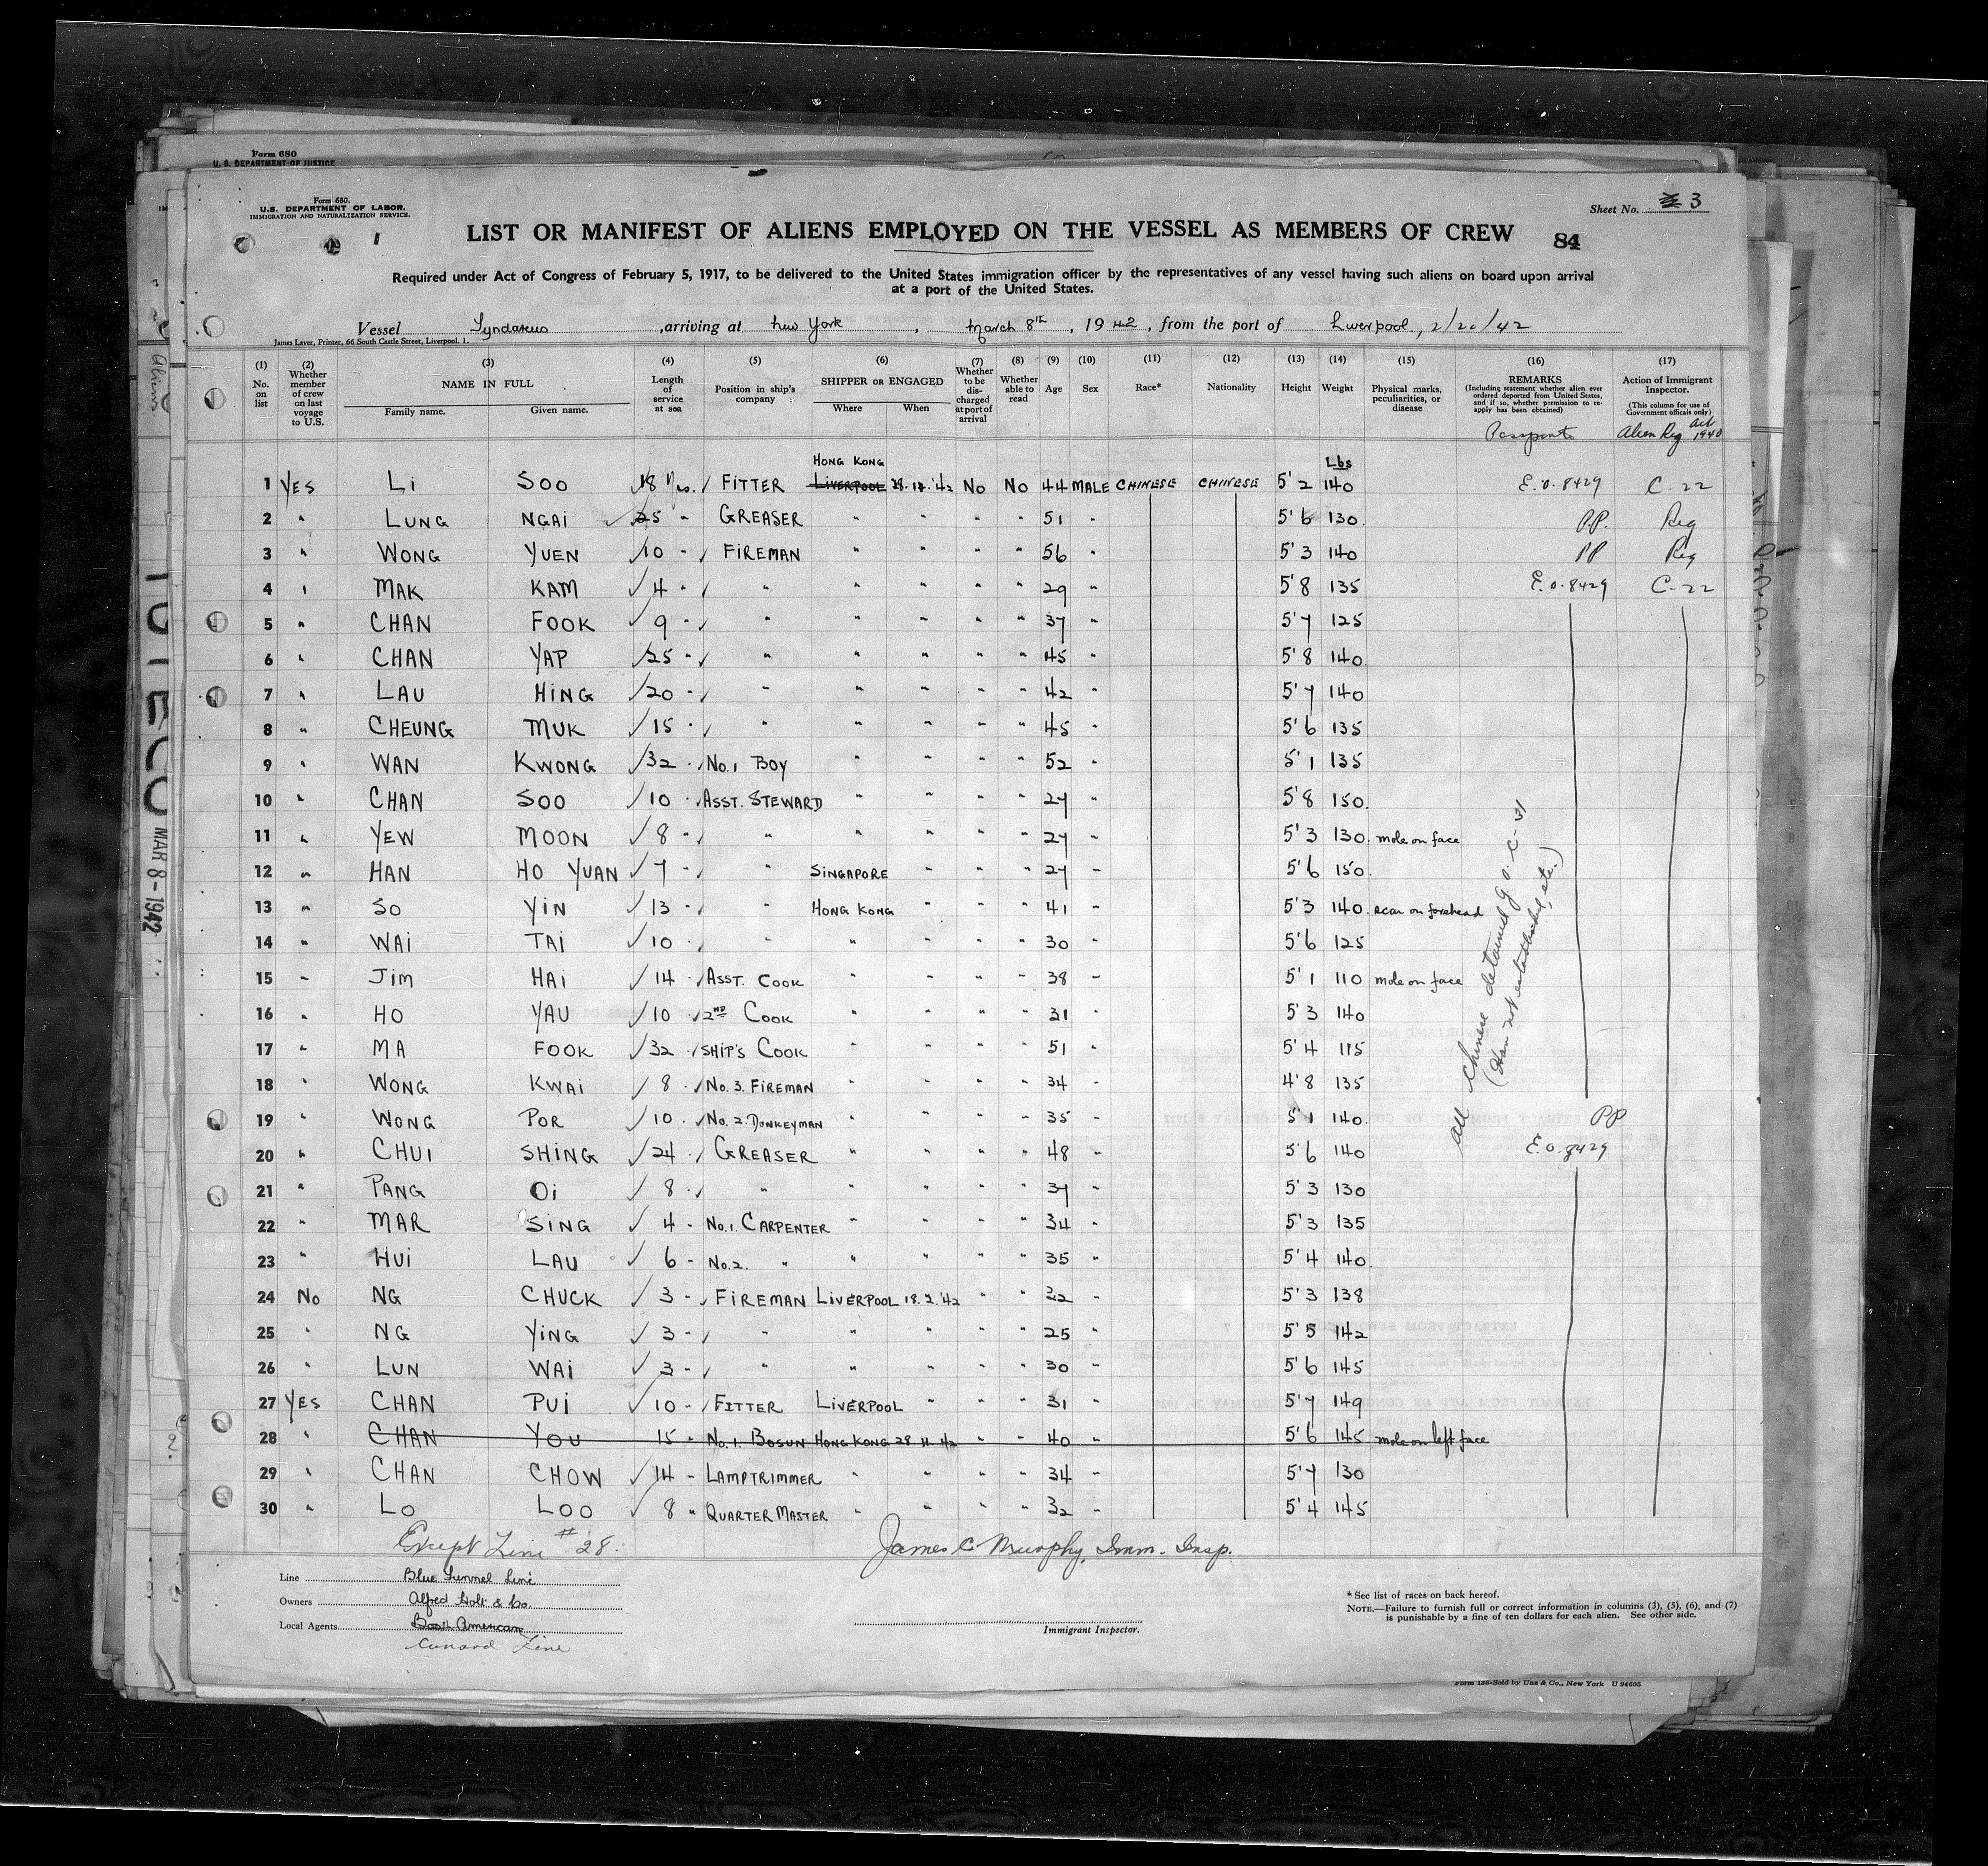 Form 680
U. S. DEPARTMENT OF JUSTICE
Form 680.
U.S. DEPARTMENT OF LABOR.
IMMIGRATION AND NATURALIZATION SERVICE.
Sheet No. 3
LIST OR MANIFEST OF ALIENS EMPLOYED ON THE VESSEL AS MEMBERS OF CREW 84
Required under Act of Congress of February 5, 1917, to be delivered to the United States immigration officer by the representatives of any vessel having such aliens on board upon arrival
at a port of the United States.
Vessel Tyndareus, arriving at New York, March 8th, 1942, from the port of Liverpool, 2/20/42
James Laver, Printer, 66 South Castle Street, Liverpool. 1.
(1) No. on list
(2) Whether member of crew on last voyage to U.S.
(3) NAME IN FULL Family name. Given name.
(4) Length of service at sea
(5) Position in ship's company
(6) SHIPPER OR ENGAGED Where When
(7) Whether to be discharged at port of arrival
(8) Whether able to read
(9) Age
(10) Sex
(11) Race*
(12) Nationality
(13) Height
(14) Weight
(15) Physical marks, peculiarities, or disease
(16) REMARKS (Including statement whether alien ever ordered deported from United States, and if so, whether permission to re-apply has been obtained) Passports
(17) Action of Immigrant Inspector. (This column for use of Government officials only) Alien Reg Act 1940
HONG KONG Lbs
1 YES Li SOO 18 Yrs. FITTER LIVERPOOL 28.11.'42 No No 44 MALE CHINESE CHINESE 5'2 140 E.O.8429 C-22
2 " LUNG NGAI 25 " GREASER " " " " 51 " 5'6 130 P.P. Reg
3 " WONG YUEN 10 " FIREMAN " " " " 56 " 5'3 140 PP Reg
4 " MAK KAM 4 " " " " " " 29 " 5'8 135 E.O.8429 C-22
5 " CHAN FOOK 9 " " " " " " 37 " 5'7 125
6 " CHAN YAP 25 " " " " " " 45 " 5'8 140
7 " LAU HING 20 " " " " " " 42 " 5'7 140
8 " CHEUNG MUK 15 " " " " " " 45 " 5'6 135
9 " WAN KWONG 32 " No.1 BOY " " " " 52 " 5'1 135
10 " CHAN SOO 10 " ASST. STEWARD " " " " 27 " 5'8 150
11 " YEW MOON 8 " " " " " " 27 5'3 130 mole on face
12 " HAN HO YUAN 7 " " SINGAPORE " " " 27 " 5'6 150
13 " SO YIN 13 " " HONG KONG " " " 41 " 5'3 140 scar on forehead
14 " WAI TAI 10 " " " " " " 30 " 5'6 125
15 " Jim HAI 14 " ASST. COOK " " " " 38 " 5'1 110 mole on face
16 " HO YAU 10 " 2ND COOK " " " " 31 " 5'3 140
17 " MA FOOK 32 " SHIP'S COOK " " " " 51 " 5'4 115
18 " WONG KWAI 8 " No. 3. FIREMAN " " " " 34 " 4'8 135
19 " WONG POR 10 " No. 2. DONKEYMAN " " " " 35 " 5'1 140 PP
20 " CHUI SHING 24 " GREASER " " " " 48 " 5'6 140 E.O.8429
21 " PANG Oi 8 " " " " " " 37 " 5'3 130
22 " MAR SING 4 " No.1. CARPENTER " " " " 34 " 5'3 135
23 " HUI LAU 6 " No.2. " " " " " 35 " 5'4 140
24 No NG CHUCK 3 " FIREMAN LIVERPOOL 18.2.'42 " " 32 " 5'3 138
25 " NG YING 3 " " " " " " 25 " 5'5 142
26 " LUN WAI 3 " " " " " " 30 " 5'6 145
27 YES CHAN PUI 10 " FITTER LIVERPOOL " " " 31 " 5'7 149
28 " CHAN YOU 15 " No.1. BOSUN HONG KONG 28 11 42 " " 40 " 5'6 145 mole on left face
29 " CHAN CHOW 14 " LAMPTRIMMER " " " " 34 " 5'7 130
30 " LO LOO 8 " QUARTER MASTER " " " " 32 " 5'4 145
all Chinese detained G.O. C-31
(Han not established, etc.)
Except Line #28.
James C Murphy, Imm. Insp.
Line Blue Funnel Line
Owners Alfred Holt & Co.
Local Agents Booth American
Cunard Line
Immigrant Inspector.
* See list of races on back hereof.
NOTE.—Failure to furnish full or correct information in columns (3), (5), (6), and (7)
is punishable by a fine of ten dollars for each alien. See other side.
Form 186-Sold by Unz & Co., New York U 94605
MAR 8-1942